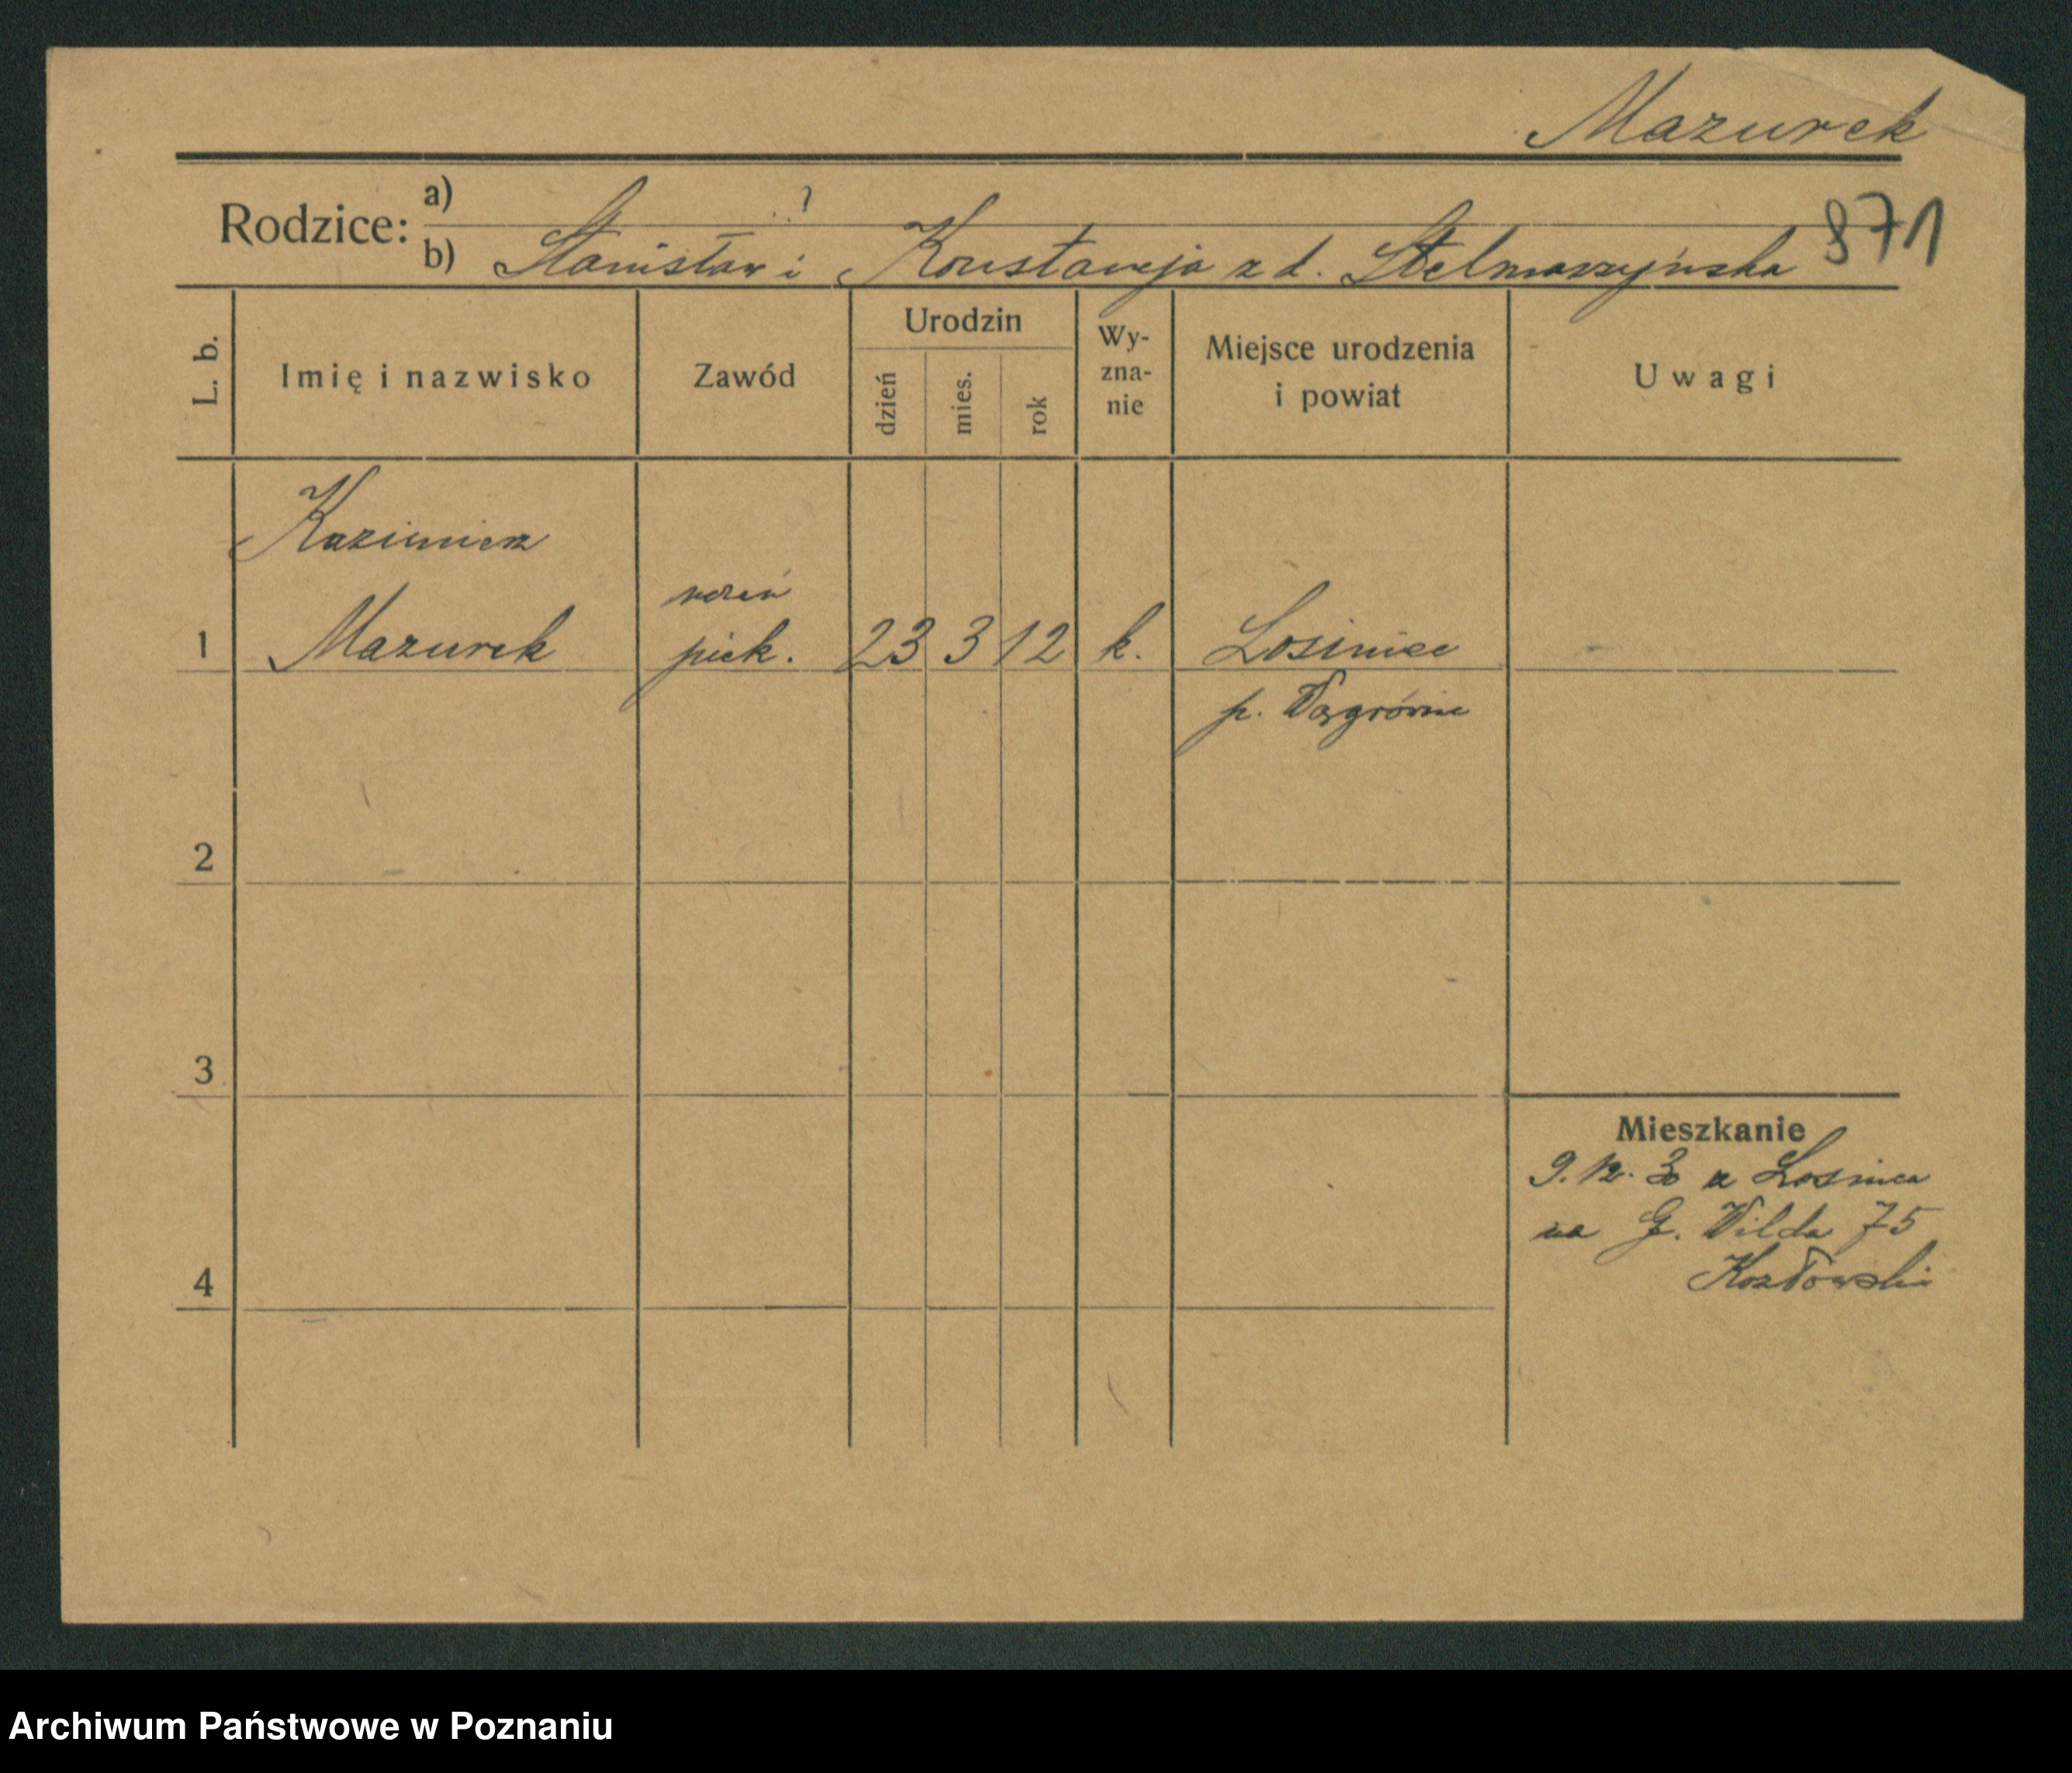 Mazurek
Rodzice: a) ?
871
b) Stanisław i Konstancja z d. Stelmaszyńska
L. b.
Imię i nazwisko
Zawód
Urodzin
dzień
mies.
rok
Wy-
zna-
nie
Miejsce urodzenia
i powiat
Uwagi
Kazimierz
uczeń
1 Mazurek piek. 23 3 12 k. Łosiniec
p. Wągrówiec
2
3
4
Mieszkanie
9. 12. 30 z Łosińca
na G. Wilda 75
Kozłowski
Archiwum Państwowe w Poznaniu